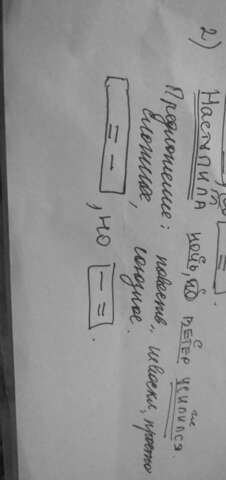 2)
НАСТУПИЛА НОЧЬ, НО ВЕТЕР УСИЛИЛСЯ.
Предложение: повеств.,
сложное, союзное.
[= –], но [– =].